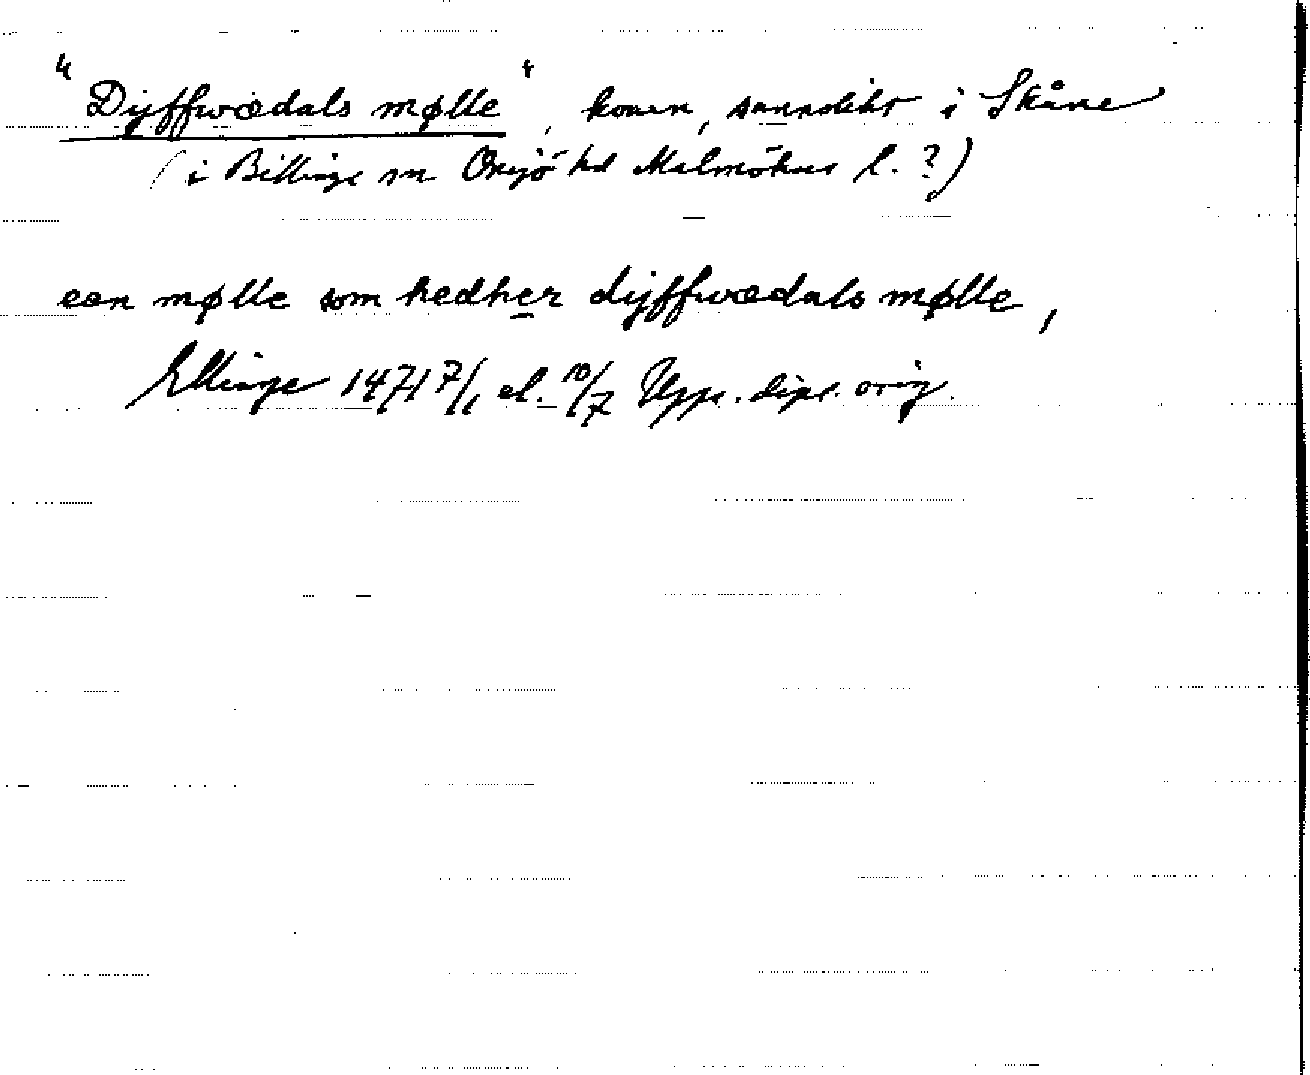 "Dyffwædals mølle", kvarn, sannolikt i Skåne
(i Billinge sn Onsjö hd Malmöhus l. ?)
een mølle som hedher dyffwædals mølle,
Ellinge 1471 7/1 el. 10/7 Upps. dipl. orig.